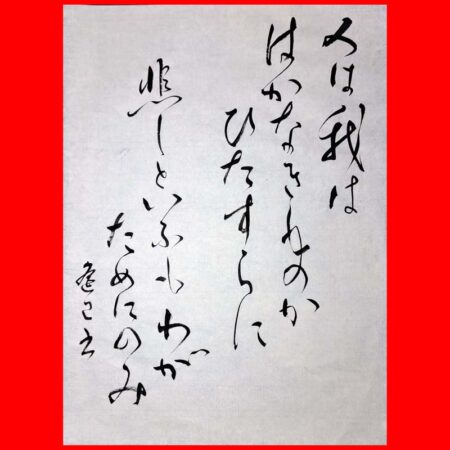 人は我は
はかなきものか
ひたすらに
悲しといふもわが
ためにのみ